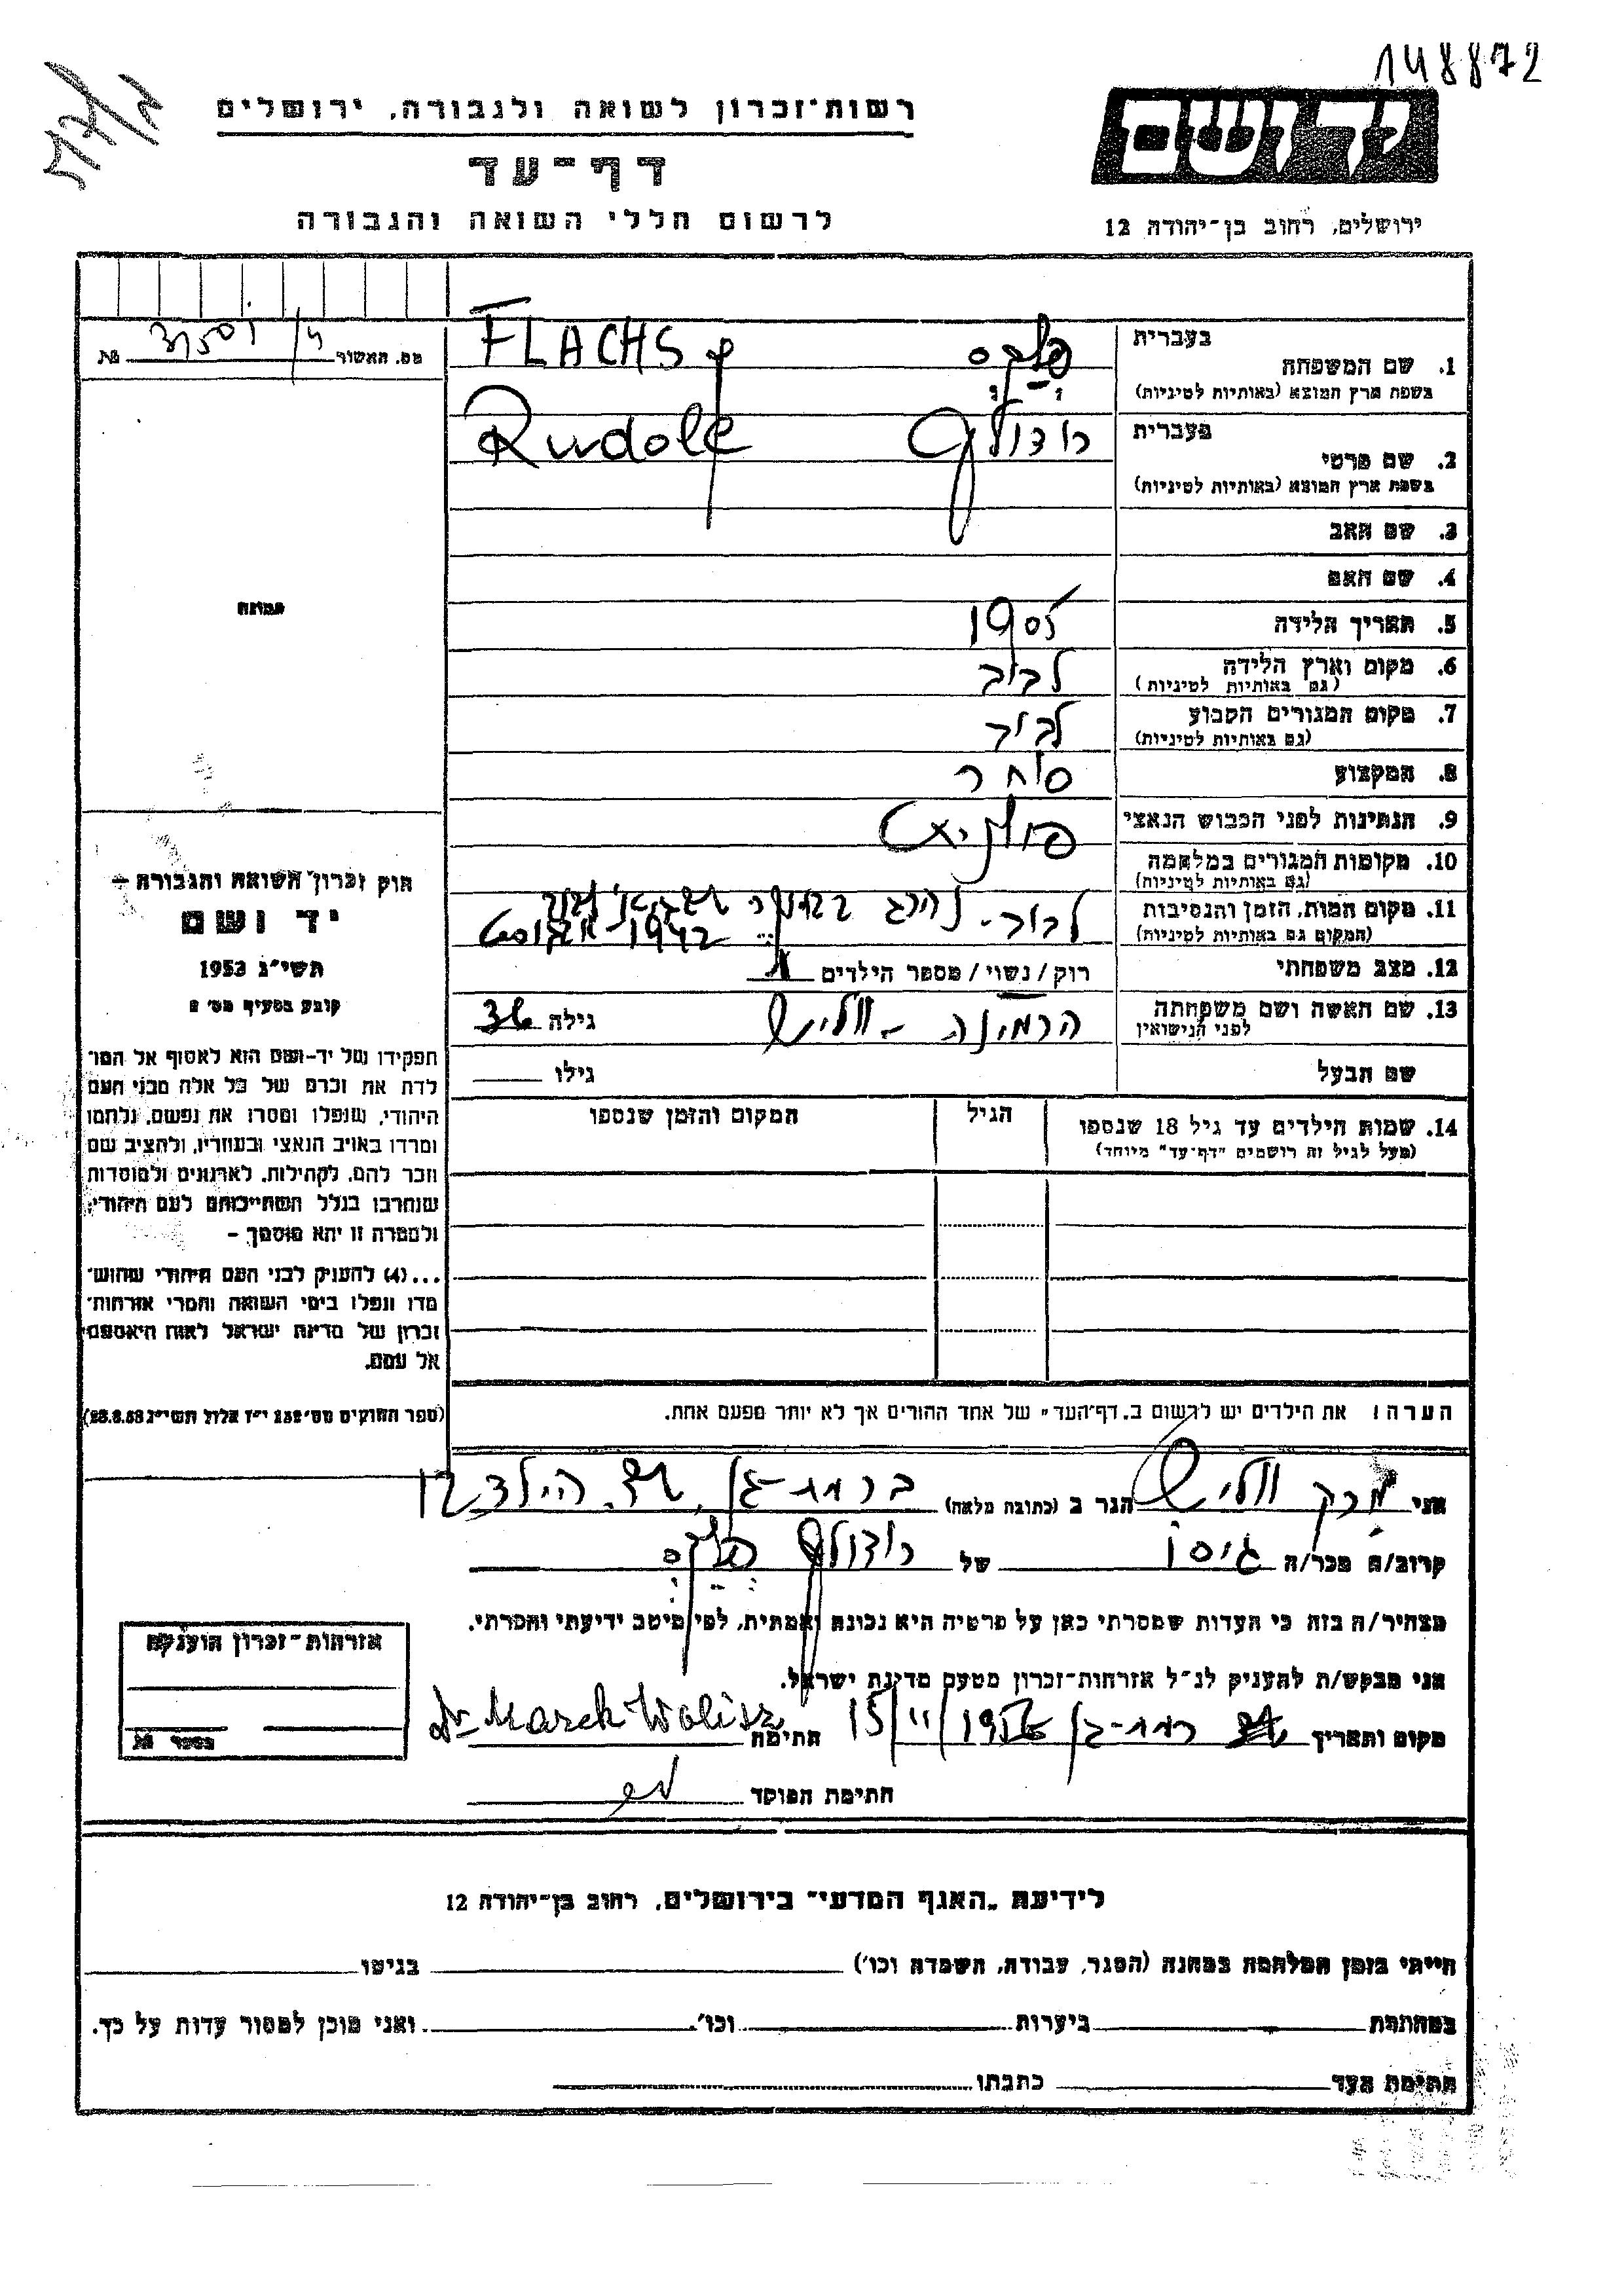 148872
רשות־זכרון לשואה ולגבורה, ירושלים
יד ושם
דף־עד
לרשום חללי השואה והגבורה
ירושלים, רחוב בן־יהודה 12
מס. האשור
בעברית
1. שם המשפחה
פלכס FLACHS
בשפת ארץ המוצא (באותיות לטיניות)
בעברית
2. שם פרטי
רודולף Rudolf
בשפת ארץ המוצא (באותיות לטיניות)
3. שם האב
4. שם האם
5. תאריך הלידה 1905
6. מקום וארץ הלידה לבוב
(גם באותיות לטיניות)
7. מקום המגורים הקבוע לבוב
(גם באותיות לטיניות)
8. המקצוע סוחר
9. הנתינות לפני הכבוש הנאצי פולנית
10. מקומות המגורים במלחמה
(גם באותיות לטיניות)
11. מקום המות, הזמן והנסיבות לבוב - נהרג
(המקום גם באותיות לטיניות) אוגוסט 1942
12. מצב משפחתי רוק / נשוי / מספר הילדים
13. שם האשה ושם משפחתה הרמינה - ווליש גילה 36
לפני הנישואין
שם הבעל גילו
14. שמות הילדים עד גיל 18 שנספו הגיל המקום והזמן שנספו
(מעל לגיל זה רושמים "דף־עד" מיוחד)
הערה: את הילדים יש לרשום ב„דף־העד" של אחד ההורים אך לא יותר מפעם אחת.
תמונה
חוק זכרון השואה והגבורה —
יד ושם
תשי״ג 1953
קובע בסעיף מס׳ 2
תפקידו של יד־ושם הוא לאסוף אל המו־
לדת את זכרם של כל אלה מבני העם
היהודי, שנפלו ומסרו את נפשם, נלחמו
ומרדו באויב הנאצי ובעוזריו, ולהציב שם
וזכר להם, לקהילות, לארגונים ולמוסדות
שנחרבו בגלל השתייכותם לעם היהודי,
ולמטרה זו יהא מוסמך —
...(4) להעניק לבני העם היהודי שהוש־
מדו ונפלו בימי השואה והמרי אזרחות־
זכרון של מדינת ישראל לאות היאספם
אל עמם.
(ספר החוקים מס׳ 132 י״ז אלול תשי״ג 28.8.53)
אני מרק ווליש הגר ב (כתובה מלאה) ברמת-גן, הילד 12
קרוב/ה מכר/ה גיסו של רודולף פלכס
מצהיר/ה בזה כי העדות שמסרתי כאן על פרטיה היא נכונה ואמתית, לפי מיטב ידיעתי והכרתי.
אני מבקש/ת להעניק לנ״ל אזרחות־זכרון מטעם מדינת ישראל.
מקום ותאריך רמת-גן 15/11/ חתימה Dr Marek Wolisz
חתימת הפוקד
אזרחות־זכרון הוענקה
מספר
לידיעת „האגף המדעי" בירושלים, רחוב בן־יהודה 12
הייתי בזמן המלחמה במחנה (הסגר, עבודה, השמדה וכו׳) בגיטו
במחתרת ביערות וכו׳ ואני מוכן למסור עדות על כך.
חתימת העד כתבתו